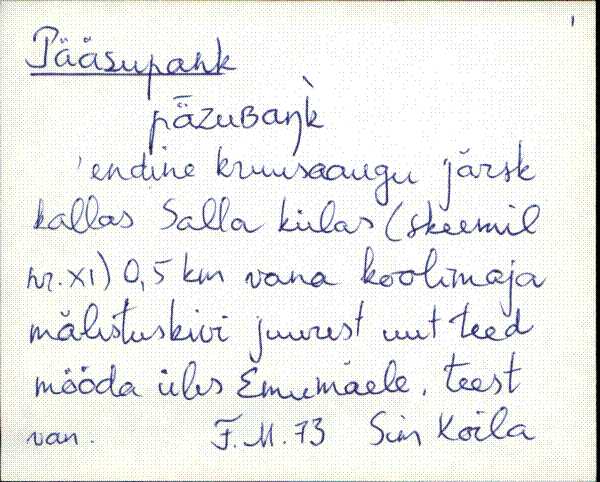 1
Pääsupank
pǟzuʙaŋ̀k
'endine kruusaaugu järsk
kallas Salla külas (skeemil
nr. XI) 0,5 km vana koolimaja
mälestuskivi juurest uut teed
mööda üles Emumäele, teest
van. F. M. 73 Sim Koila